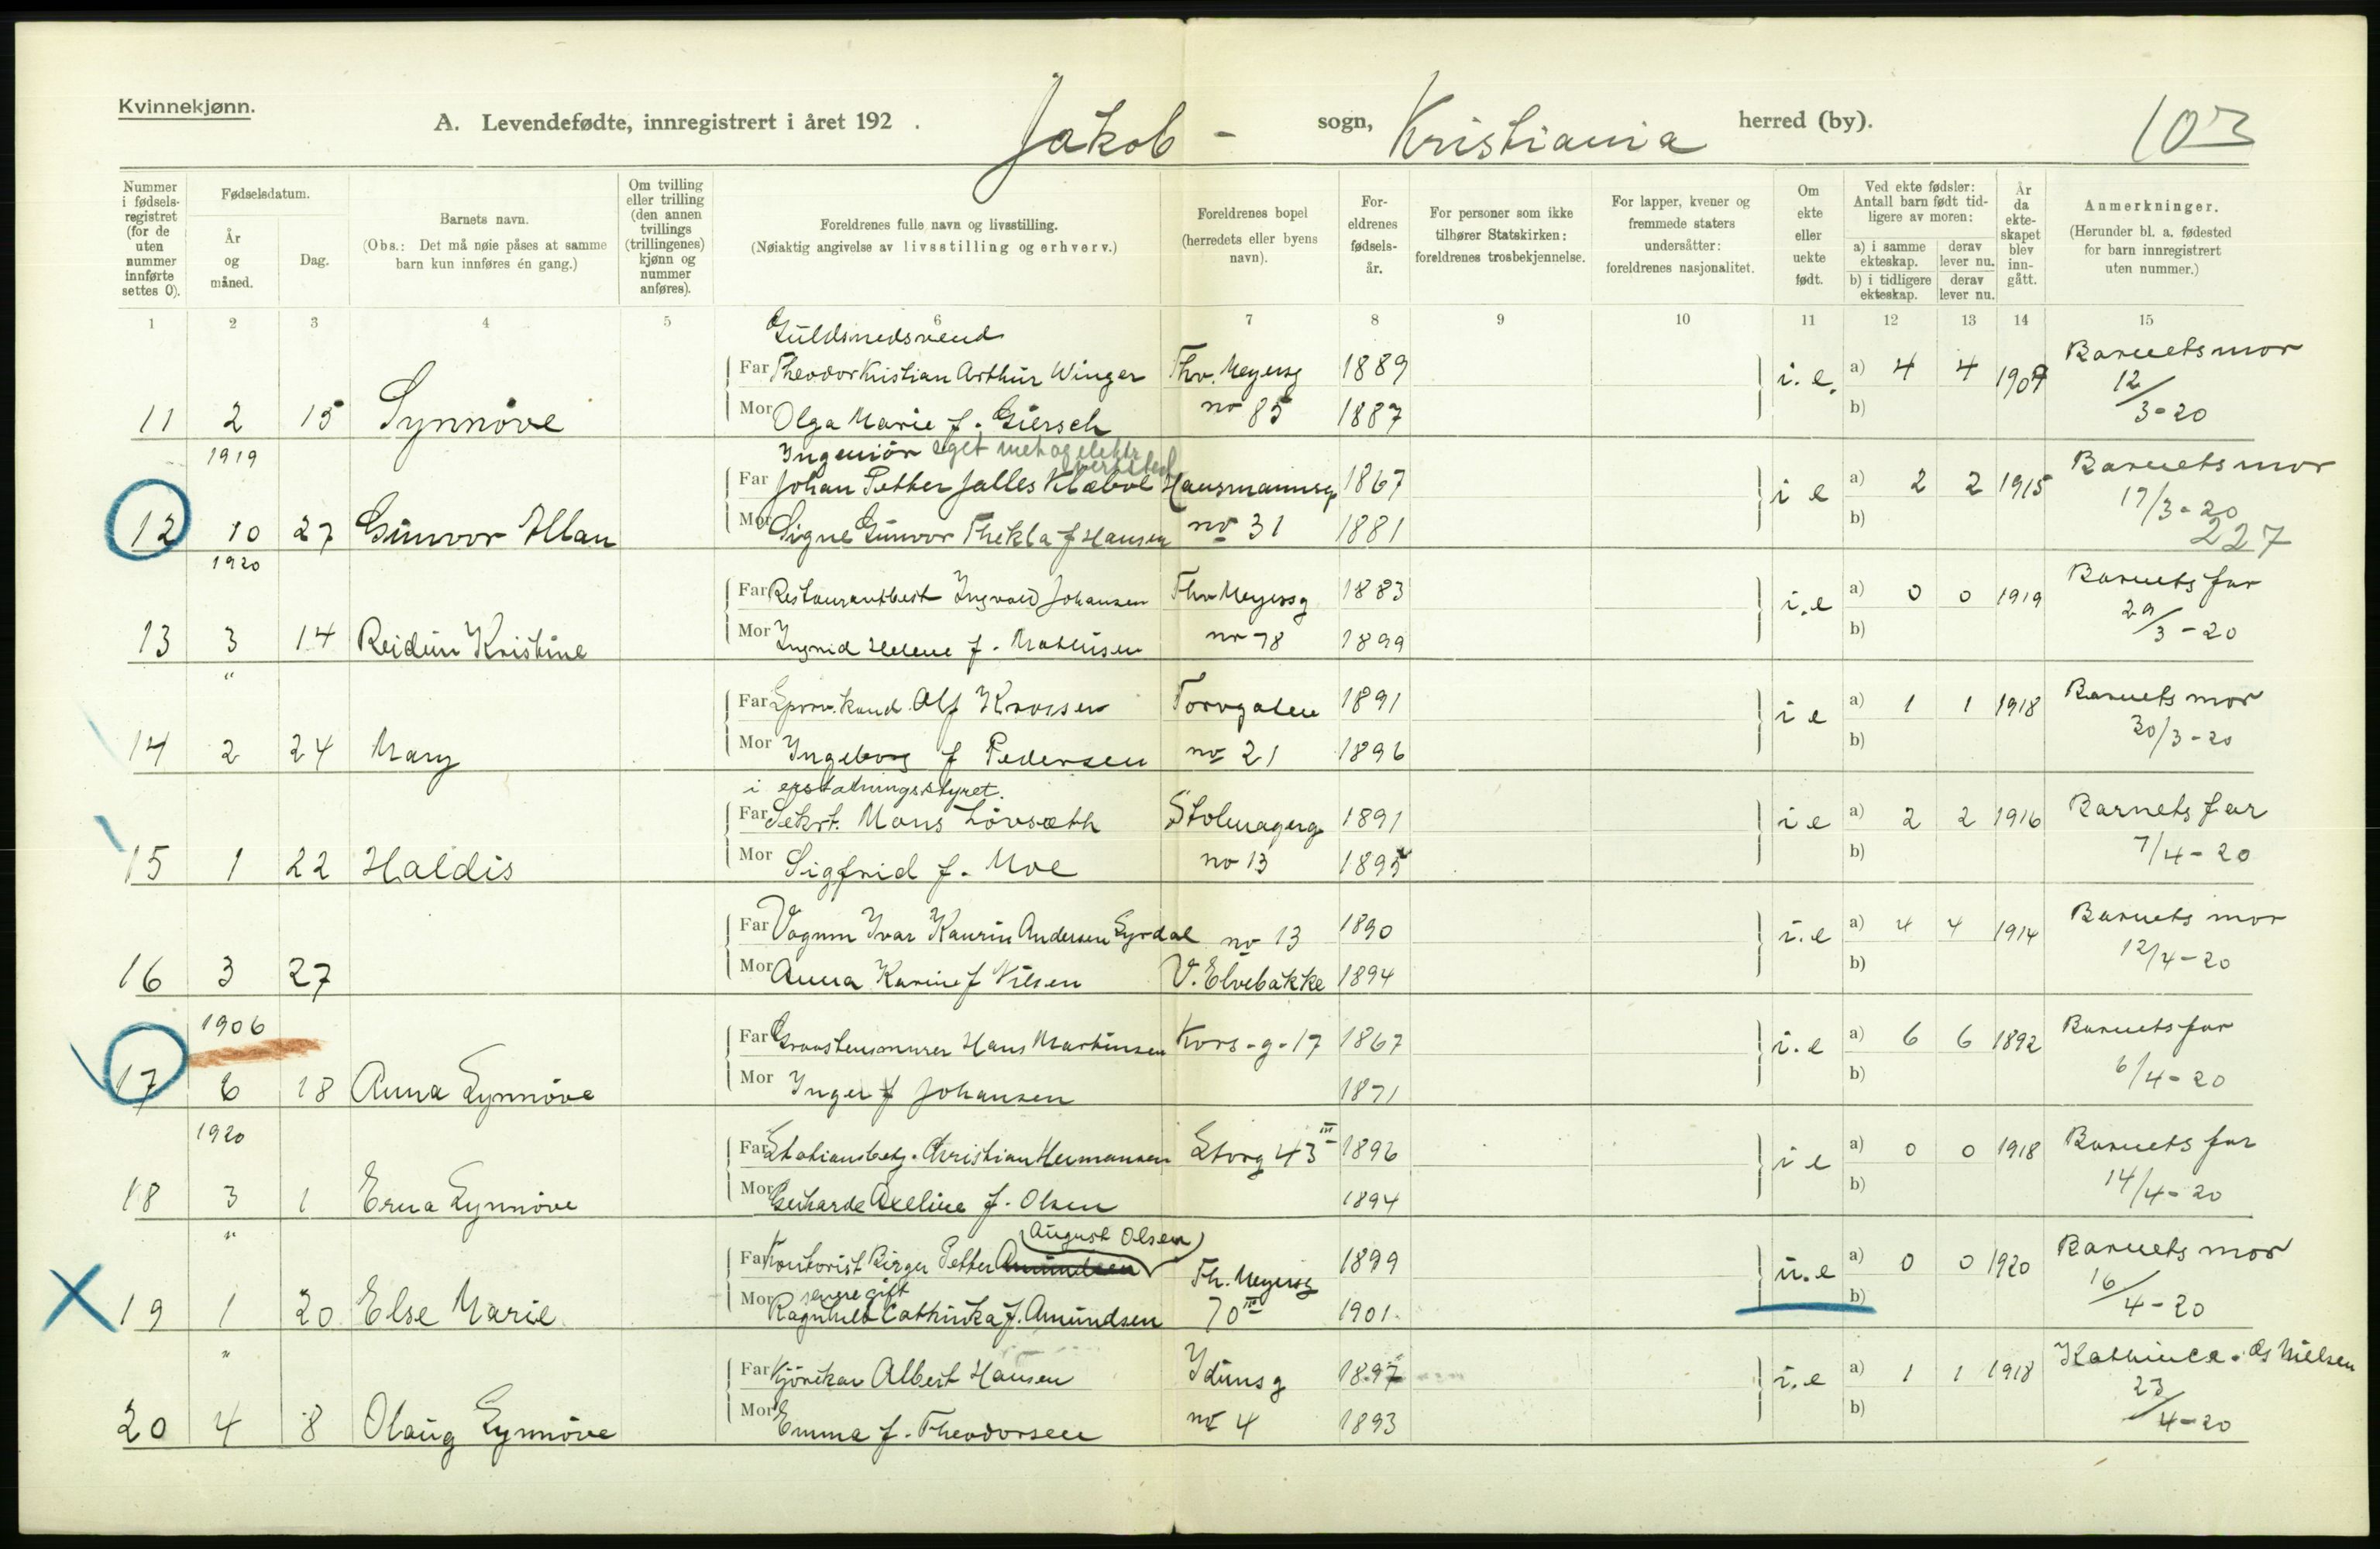 Kvinnekjønn.
A. Levendefødte, innregistrert i året 192 . Jakob - sogn, Kristiania herred (by). 103
Nummer i fødsels-registret (for de uten nummer innførte settes 0).
Fødselsdatum.
År og måned.
Dag.
Barnets navn.
(Obs.: Det må nøie påses at samme barn kun innføres én gang.)
Om tvilling eller trilling (den annen tvillings (trillingenes) kjønn og nummer anføres).
Foreldrenes fulle navn og livsstilling.
(Nøiaktig angivelse av livsstilling og erhverv.)
Foreldrenes bopel (herredets eller byens navn).
For-eldrenes fødsels-år.
For personer som ikke tilhører Statskirken: foreldrenes trosbekjennelse.
For lapper, kvener og fremmede staters undersåtter: foreldrenes nasjonalitet.
Om ekte eller uekte født.
Ved ekte fødsler: Antall barn født tid-ligere av moren:
a) i samme ekteskap. derav lever nu.
b) i tidligere ekteskap. derav lever nu.
År da ekte-skapet blev inn-gått.
Anmerkninger.
(Herunder bl. a. fødested for barn innregistrert uten nummer.)
1 2 3 4 5 6 7 8 9 10 11 12 13 14 15
Güldsmedsvend
Far Theodor Kristian Arthür Winger Thv. Meyersg 1889 i.e. a) 4 4 1907 Barnets mor
11 2 15 Synnöve Mor Olga Marie f. Giersch no 85 1887 b) 12/3-20
1919 Ingeniör eget mek og elektr verksted
Far Johan Petter Jalles Klæboe Hausmannsg 1867 i e a) 2 2 1915 Barnets mor
12 10 27 Günvor Ellan Mor Signe Günvor Thekla f Hansen no 31 1881 b) 17/3-20
227
1920
Far Restaurantbest Ingvald Johansen Thv Meyersg 1883 i.e a) 0 0 1919 Barnets far
13 3 14 Reidün Kristine Mor Ingrid Helene f. Mathisen no 78 1899 b) 29/3-20
"
Far kand. Alf Torvgaten 1891 i e a) 1 1 1918 Barnets mor
14 2 24 Mary Mor Ingeborg f Pedersen no 21 1896 b) 30/3-20
i erstatningsstyret.
Far Sekrt. Mons Lövsæth Stolmagerg 1891 i e a) 2 2 1916 Barnets far
15 1 22 Haldis Mor Sigfrid f. Moe no 13 1895 b) 7/4-20
Far Vognm Ivar Kaurin Andersen Syrdal no 13 1890 i.e a) 4 4 1914 Barnets mor
16 3 27 Mor Anna Karine f Nilsen V. Elvebakke 1894 b) 12/4-20
1906
Far Graastensmurer Hans Martinsen Kors-g-17 1867 i.e a) 6 6 1892 Barnets far
17 6 18 Anna Synnöve Mor Inger f Johansen 1871 b) 6/4-20
1920
Far Stationsbetj. Christian Hermansen Storg 43 III 1896 i e a) 0 0 1918 Barnets far
18 3 1 Erna Synnöve Mor Gerharde Axeline f. Olsen 1894 b) 14/4-20
" August Olsen
Far Kontorist Birger Petter Amundsen Th. Meyersg 1899 u.e a) 0 0 1920 Barnets mor
senere gift
19 1 20 Else Marie Mor Ragnhild Cathinka f. Amündsen 70 III 1901. b) 16/4-20
"
Far Kjörekar Albert Hansen Idünsg 1897 i.e a) 1 1 1918 Nielsen
20 4 8 Olaüg Synnöve Mor Emma f. Theodorsen no 4 1893 b) 23/4-20